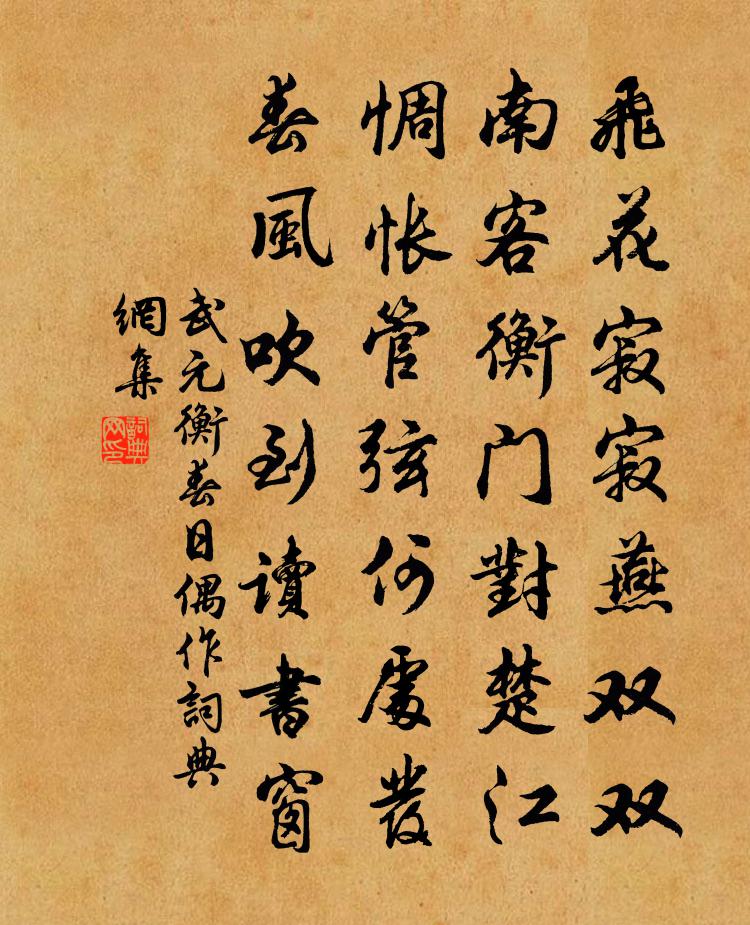 飛花寂寂燕双双
南客衡门對楚江
惆怅管弦何處發
春風吹到讀書窗
武元衡春日偶作詞典
網集
詞典
网印